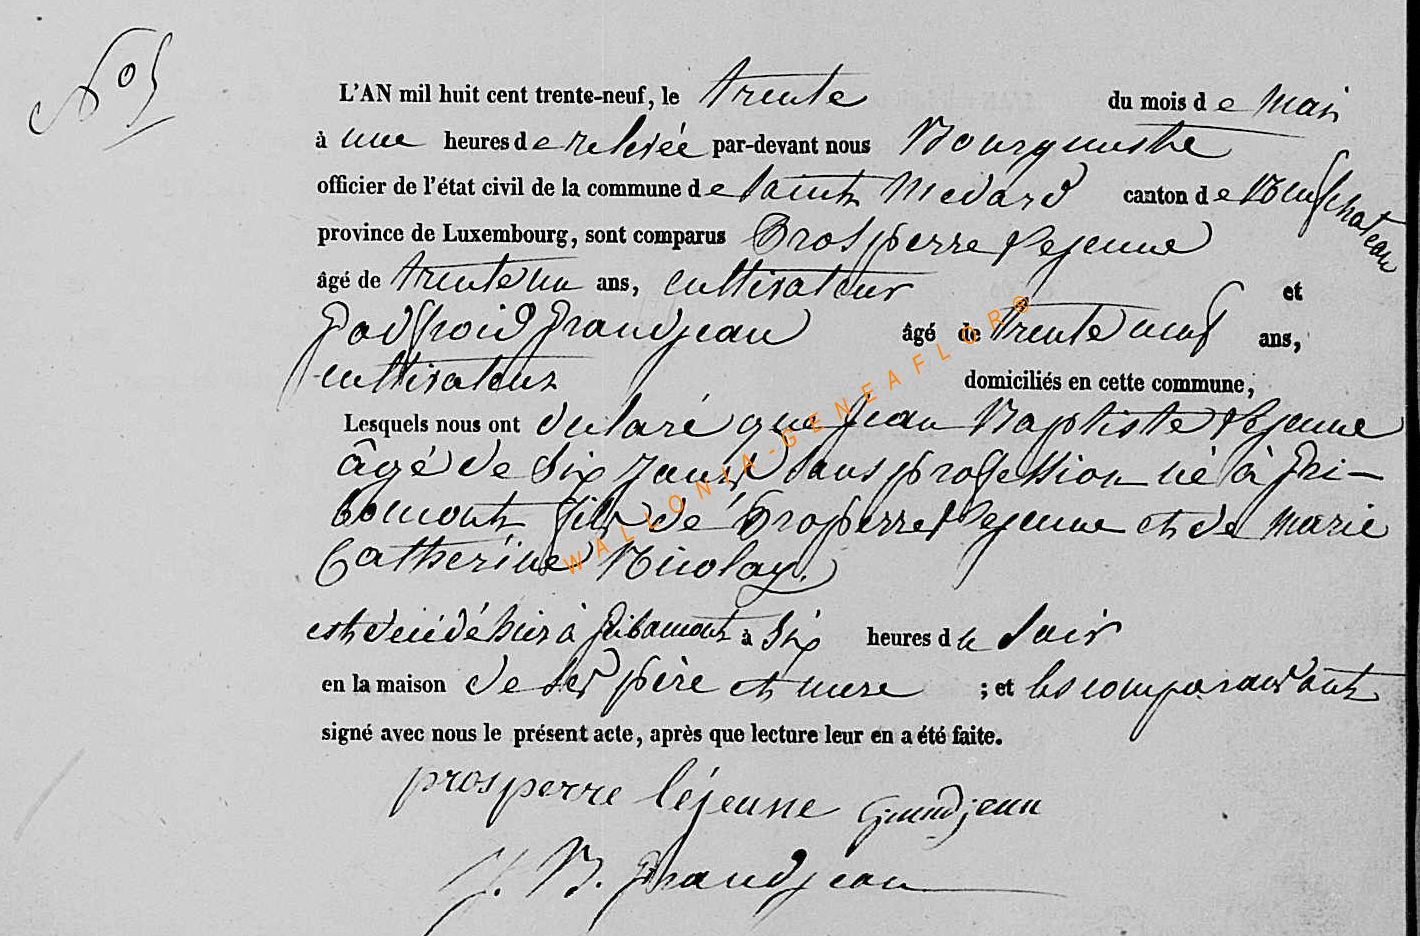 N° 5
L'AN mil huit cent trente-neuf, le trente du mois de mai
à une heures de relevée par-devant nous Bourgmestre
officier de l'état civil de la commune de Saint Medard canton de Neufchateau
province de Luxembourg, sont comparus Prosperre Lejeune
âgé de trente un ans, cultivateur et
Godfroid Grandjean âgé de trente neuf ans,
cultivateur domiciliés en cette commune,
Lesquels nous ont declaré que jean Baptiste Lejeune
âgé de six jours sans profession né à Gri-
bomont fils de Prosperre Lejeune et de marie
Catherine Nicolay.
est décédé hier à Gribomont à six heures du Soir
en la maison de ses père et mere ; et les comparans ont
signé avec nous le présent acte, après que lecture leur en a été faite.
prosperre léjeune Grandjean
J. B. Grandjean
WALLONIA-GENEAFLOR®